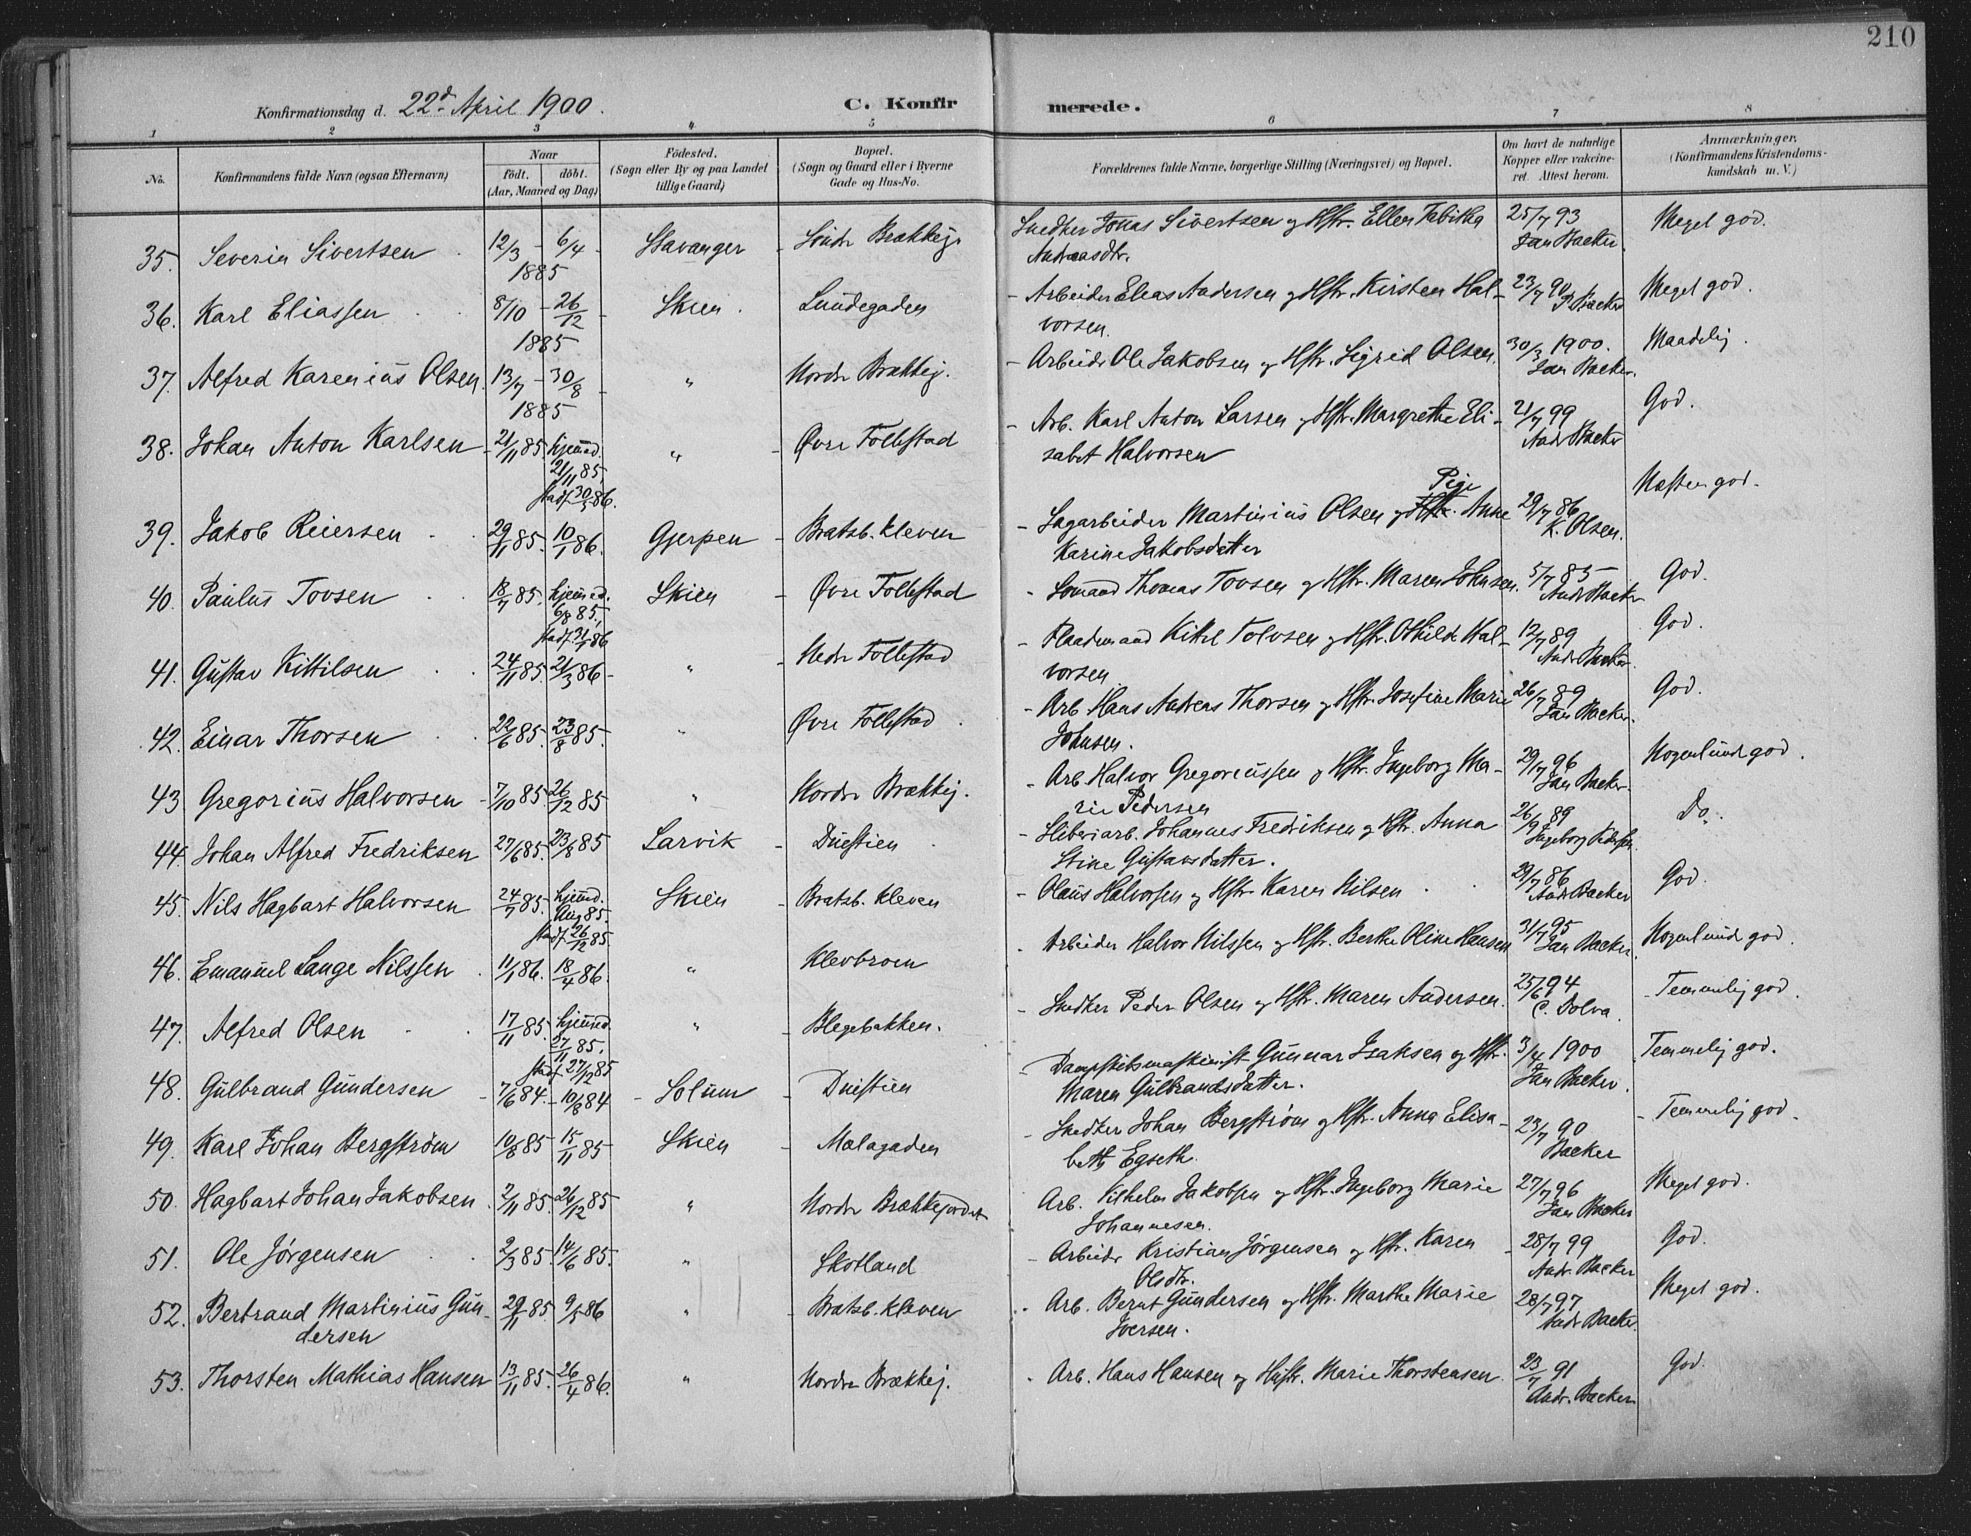 210
Konfirmationsdag d. 22d April 1900. C. Konfirmerede.
1 2 3 4 5 6 7 8
No. Konfirmandens fulde Navn (ogsaa Efternavn) Naar födt. döbt. (Aar, Maaned og Dag) Födested. (Sogn eller By og paa Landet tillige Gaard) Bopæl. (Sogn og Gaard eller i Byerne Gade og Hus-No. Forældrenes fulde Navne, borgerlige Stilling (Næringsvei) og Bopæl. Om havt de naturlige Kopper eller vakcineret. Attest herom. Anmærkninger. (Konfirmandens Kristendomskundskab m. V.)
35. Severin Sivertsen 12/3 - 6/4 1885 Stavanger Søndr Brækkejr Snedker Jonas Sivertsen og Hstr. Ellen Tabitha Andreasdtr. 25/7 93 Jan Backer. Meget god.
36. Karl Eliassen 8/10 - 26/12 1885 Skien. Lundegaden Arbeider Elias Andersen og Hstr. Kirsten Halvorsen. 23/7 90 Backer Meget god.
37. Alfred Karenius Olsen 13/7 - 30/8 1885 " Nordr Brækkej. Arbeidr Ole Jakobsen og Hstr. Sigrid Olsen. 30/3 1900. Jan Backer. Maadelig.
38. Johan Anton Karlsen 21/11 85 hjemmed. 21/11 85 stadf. 30/5 86. " Øvre Follestad Arb. Karl Anton Larsen og Hstr. Margrethe Elisabet Halvorsen 21/7 99 Andr Backer God.
39. Jakob Reiersen 29/11 85. 10/1 86. Gjerpen Bratsb. kleven Sagarbeider Martinius Olsen og Pige Anne Karine Jakobsdatter 29/7 86 K. Olsen. Næsten god.
40. Paulus Tovsen 18/7 85. hjemmed. 6/8 85, stadf. 31/1 86 Skien Øvre Follestad Sømand Thomas Tovsen og Hstr. Maren Johnsen. 5/7 85 Andr Backer God.
41. Gustav Kittilsen 24/11 85. 21/3 86 " Nedr Follestad Flaademand Kittil Tolvsen og Hstr. Othilde Halvorsen 12/7 89 Andr Backer. God.
42. Einar Thorsen 22/6 85. 23/8 85. " Øvre Follestad Arb Hans Andreas Thorsen og Hstr. Josefine Marie Johnsen. 26/7 89 Jan Backer. God.
43 Gregorius Halvorsen 7/10 85 26/12 85 " Nordre Brækkej. Arb. Halvor Gregoriussen og Hstr. Ingeborg Marie Pedersen 29/7 96 Jan Backer. Nogenlunde god.
44. Johan Alfred Fredriksen 27/6 85. 23/8 85 Larvik Duestien Sliberiarb. Johannes Fredriksen og Hstr. Anna Stine Gustavsdatter. 26/9 89 Ingeborg Pedersen. Do.
45. Nils Hagbart Halvorsen 24/7 85. hjemmd. Aug 85. stadf. 26/12 85. Skien Bratsb. kleven Olaus Halvorsen og Hstr. Karen Nilsen 29/7 86 Andr Backer God.
46. Emanuel Lange Nilssen 11/1 86. 18/4 86. " Klevbroen Arbeider Halvor Nilssen og Hstr. Berthe Oline Hansen 31/7 95 Jan Backer. Nogenlunde god.
47. Alfred Olsen 17/11 85. hjemmed. 27/11 85, stadf. 27/12 85 " Blegebakken. Snedker Peder Olsen og Hstr. Maren Andersen. 25/6 94 C. Dolva. Temmelig god.
48. Gulbrand Gundersen 7/6 84. 10/8 84 Solum Duestien Dampskibsmaskinist Gunnar Isaksen og Hstr. Maren Gulbrandsdatter. 3/4 1900 Jan Backer. Temmelig god.
49. Karl Johan Bergstrøm 10/8 85 15/11 85 Skien Mælagaden Snedker Johan Bergstrøm og Hstr. Anna Elisabeth Egseth. 23/7 90 Backer Temmelig god.
50. Hagbart Johan Jakobsen 2/11 85. 26/12 85 " Nordre Brækkejordet Arb. Vilhelm Jakobsen og Hstr. Ingeborg Marie Johannesen. 27/7 96 Jan Backer Meget god.
51. Ole Jørgensen 2/3 85. 14/6 85. " Skotland Arbeidr Kristian Jørgensen og Hstr. Karen Olsdtr. 28/7 99 Andr. Backer God.
52. Bertrand Martinius Gundersen 29/11 85. 9/5 86 " Bratsb. kleven Arb. Bernt Gundersen og Hstr. Marthe Marie Iversen. 28/7 97 Andr Backer. Meget god.
53. Thorsten Mathias Hansen 13/11 85. 26/4 86. " Nordre Brækkej. Arb. Hans Hansen og Hustr. Marie Thorstensen 23/7 91 Andr. Backer God.